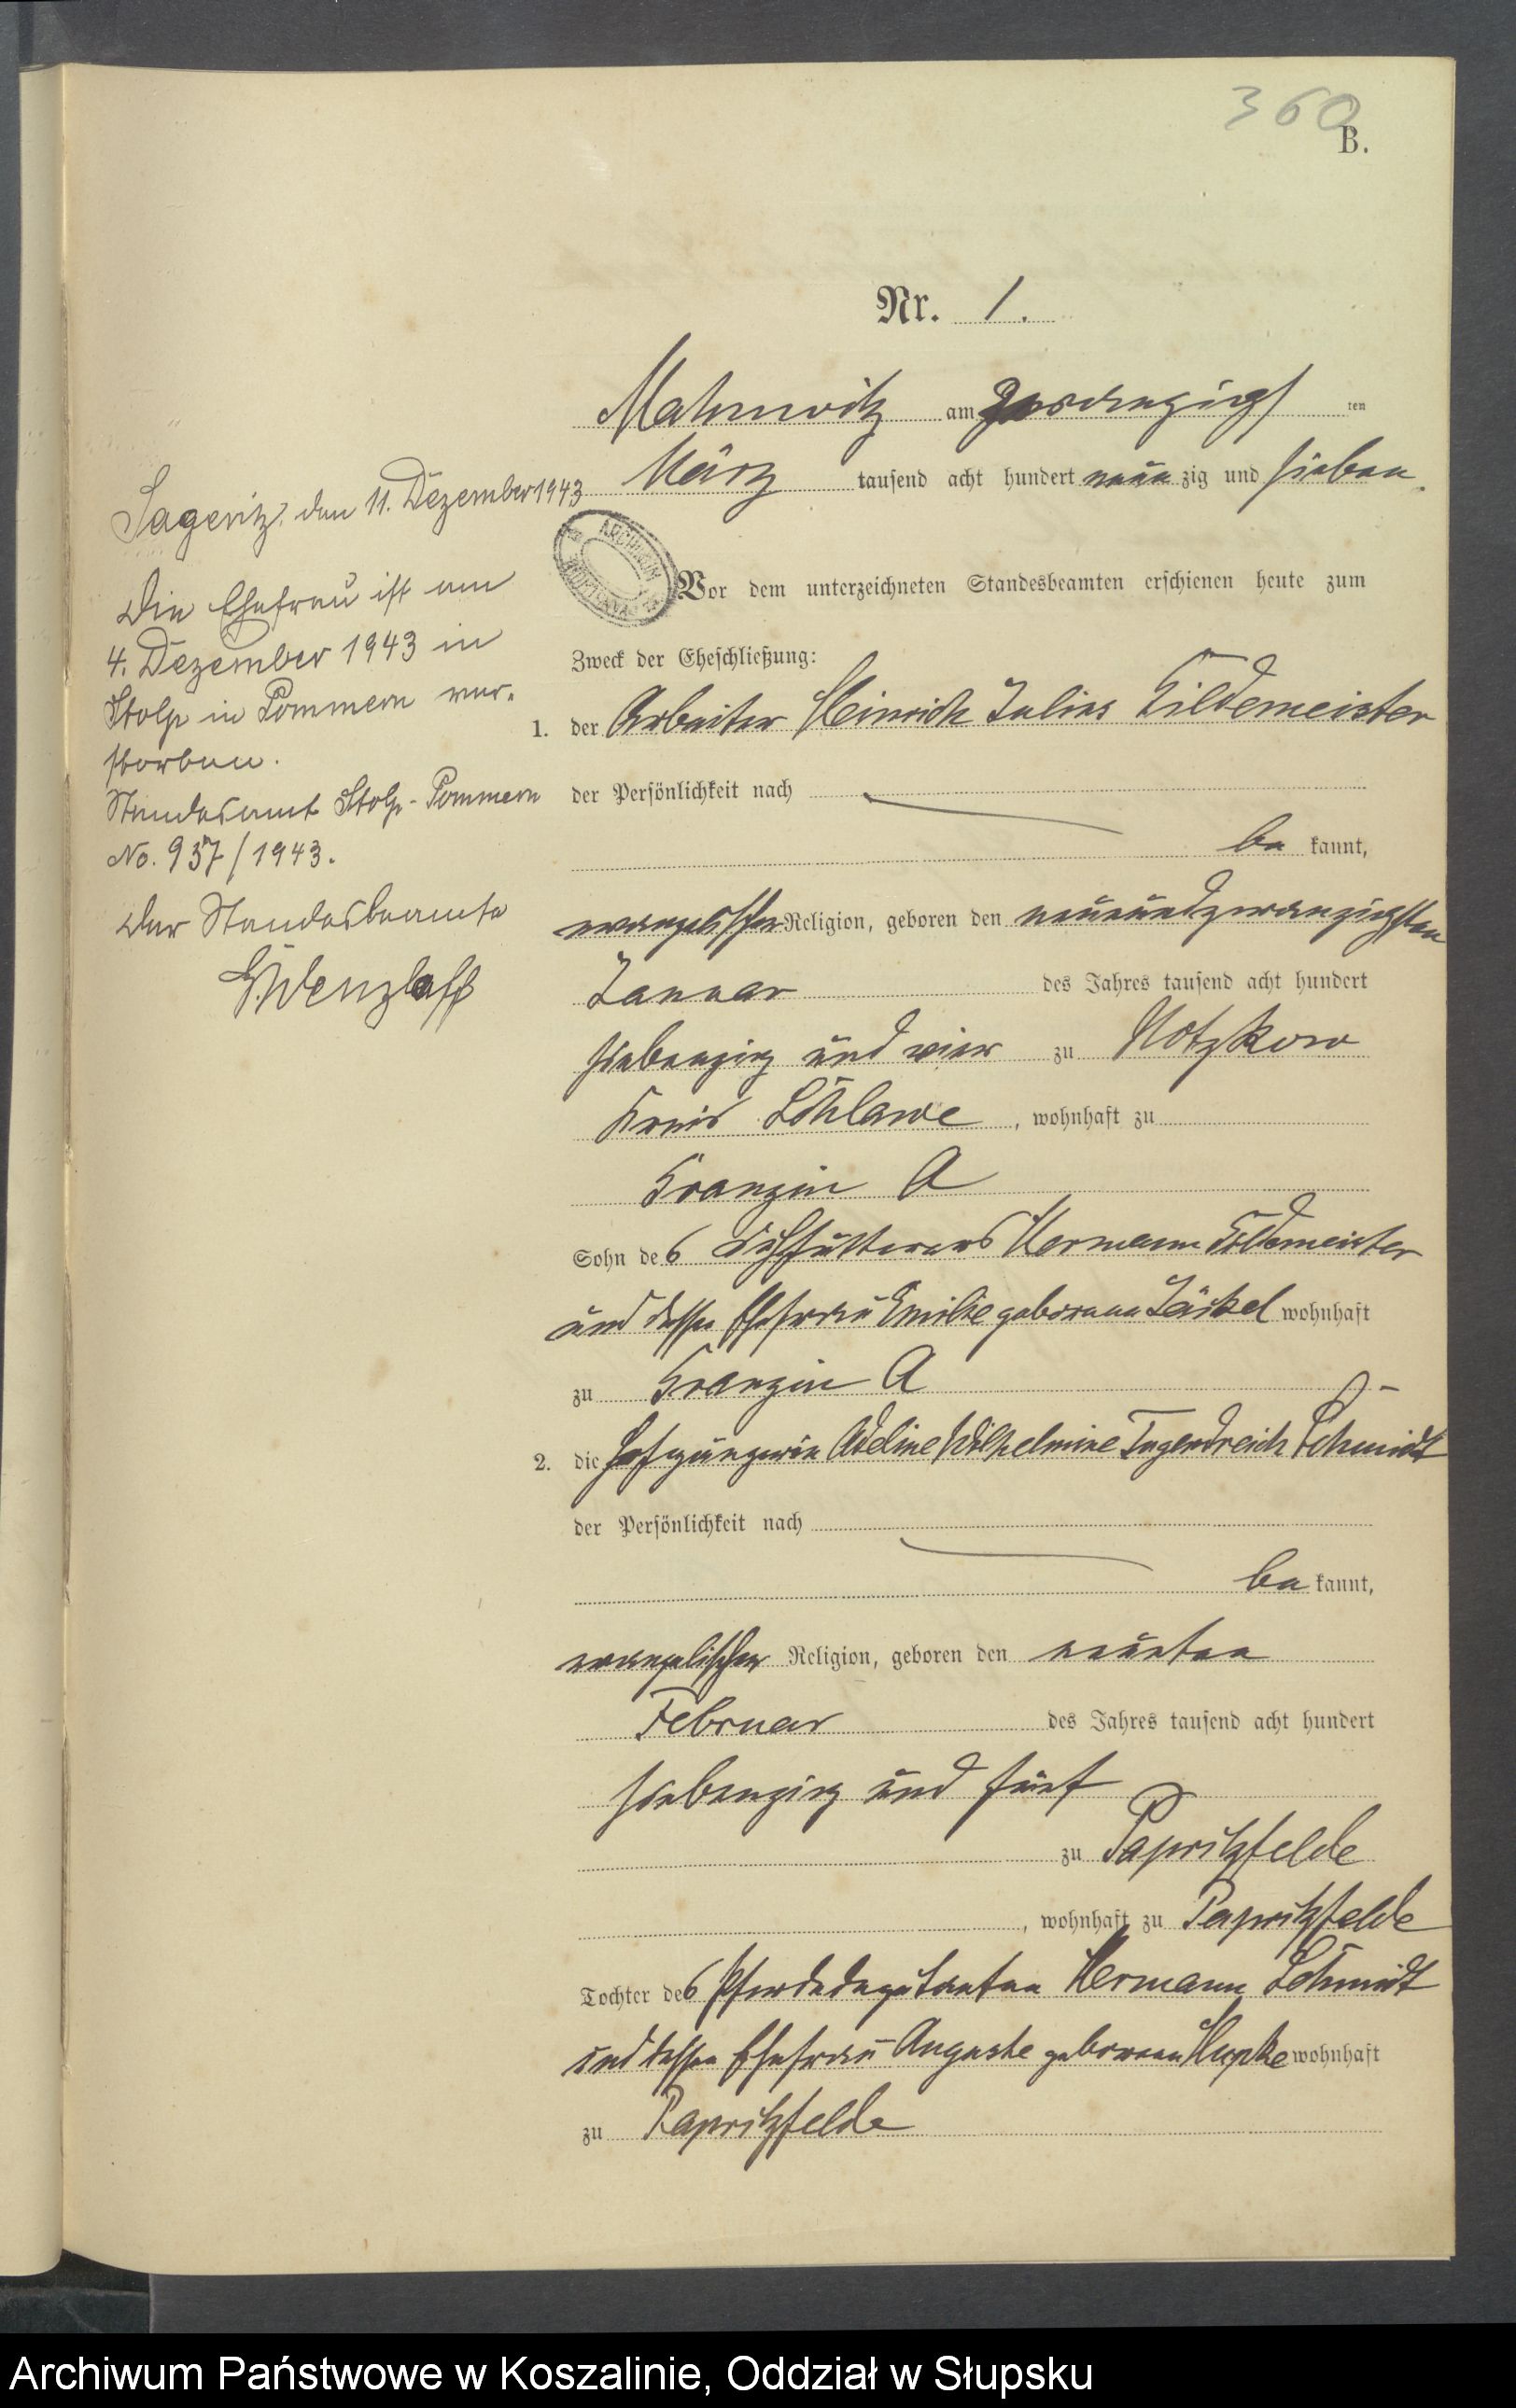 360
B.
Nr. 1.
Mahnwitz am zwanzigs ten
März tausend acht hundert neun zig und sieben
Vor dem unterzeichneten Standesbeamten erschienen heute zum
Zweck der Eheschließung:
1. der Arbeiter Heinrich Julius Tildemeister
der Persönlichkeit nach
be kannt,
evangelischer Religion, geboren den neunundzwanzigsten
Januar des Jahres tausend acht hundert
siebenzig und vier zu Notzkow
Kreis Schlawe, wohnhaft zu
Kranzin A
Sohn des Hermann Tildemeister
und dessen Ehefrau Emilie geborenen Jäckel wohnhaft
zu Kranzin A
2. die Hofgängerin Adeline Wilhelmine Tugendreich Schmidt
der Persönlichkeit nach
be kannt,
evangelischer Religion, geboren den neunten
Februar des Jahres tausend acht hundert
siebenzig und fünf
zu Papritzfelde
, wohnhaft zu Papritzfelde
Tochter des Pferdedeputanten Hermann Schmidt
und dessen Ehefrau Auguste geborenen Hupke wohnhaft
zu Papritzfelde
Sageritz, den 11. Dezember 1943
Die Ehefrau ist am
4. Dezember 1943 in
Stolp in Pommern ver-
storben.
Standesamt Stolp-Pommern
No. 937/1943.
Der Standesbeamte
Wenzlaff
ARCHIWUM
Archiwum Państwowe w Koszalinie, Oddział w Słupsku